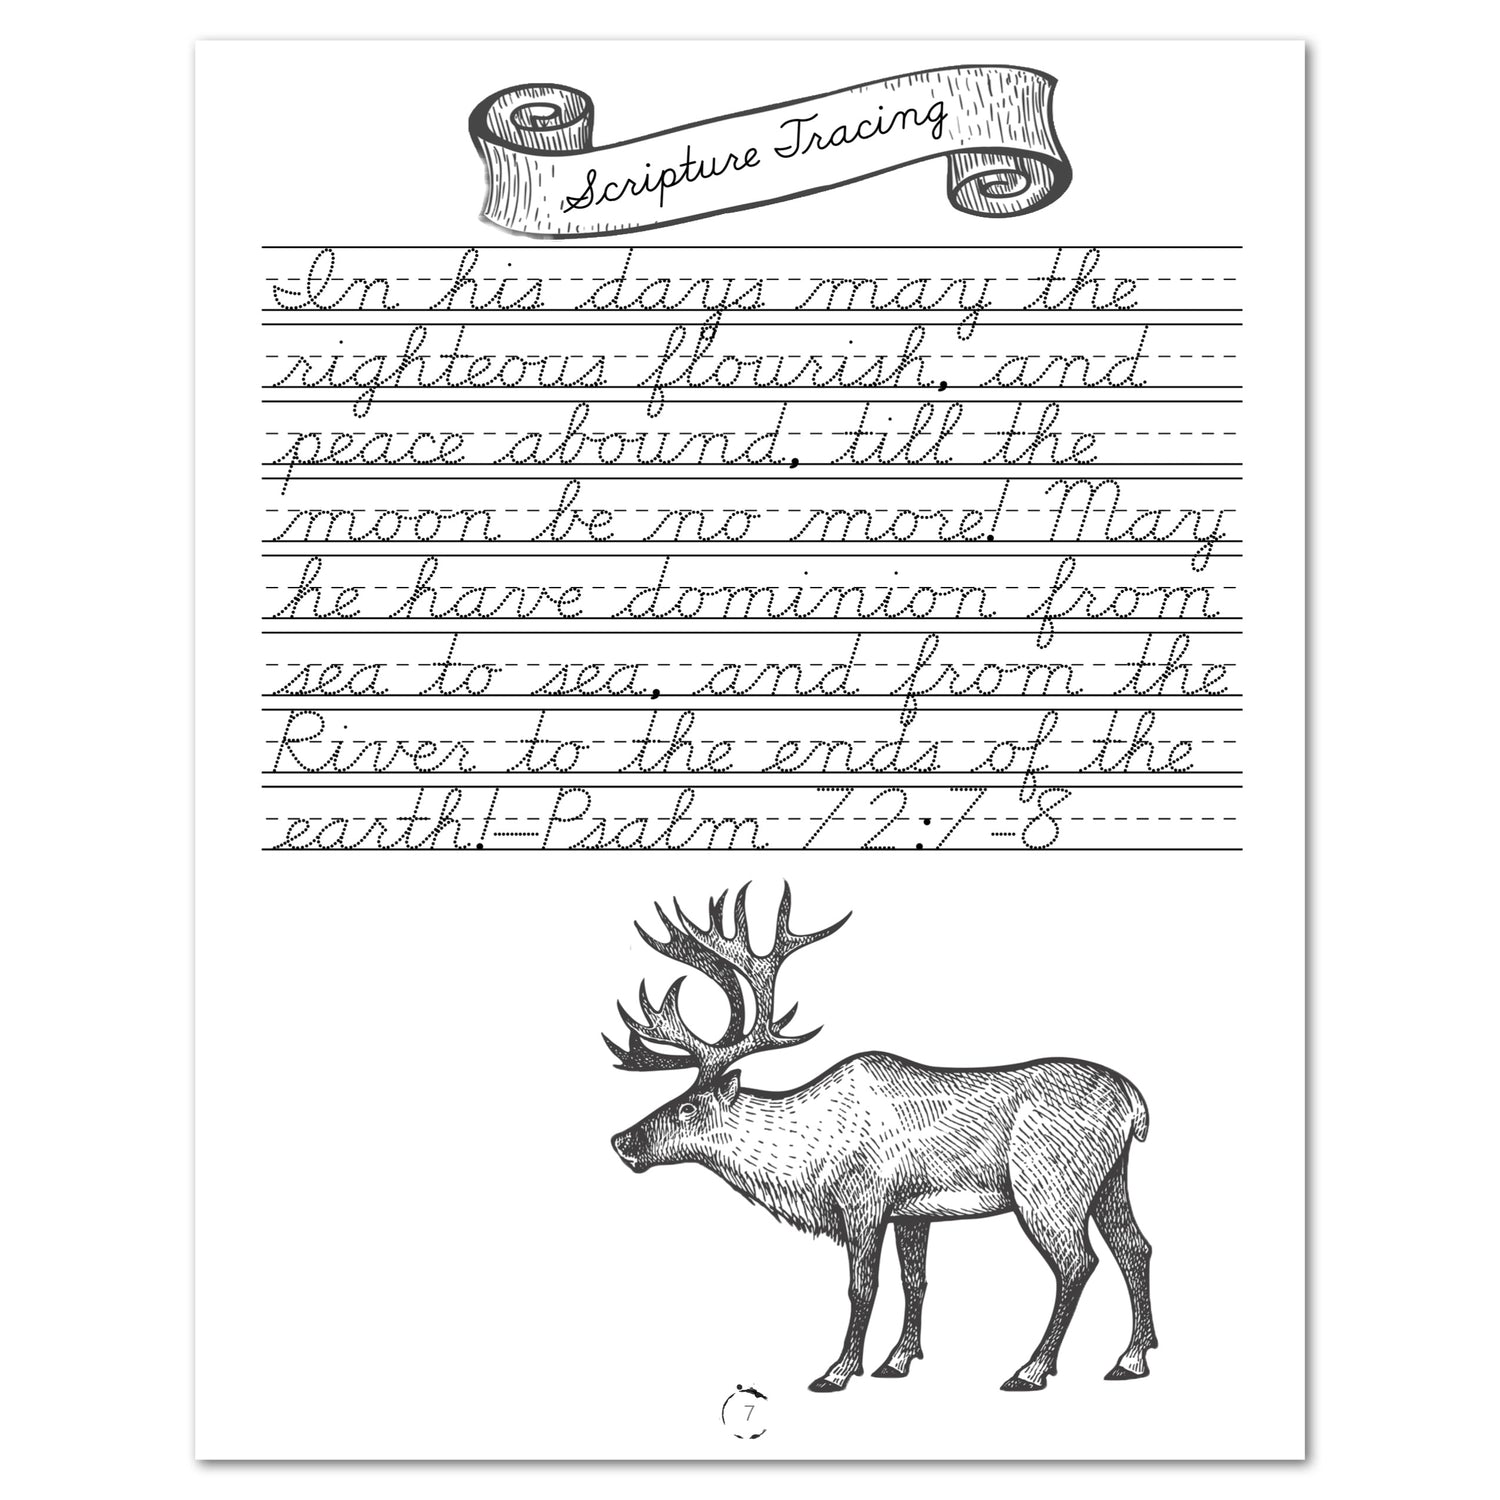 Scripture Tracing
In his days may the
righteous flourish, and
peace abound, till the
moon be no more! May
he have dominion from
sea to sea, and from the
River to the ends of the
earth!-Psalm 72:7-8
7